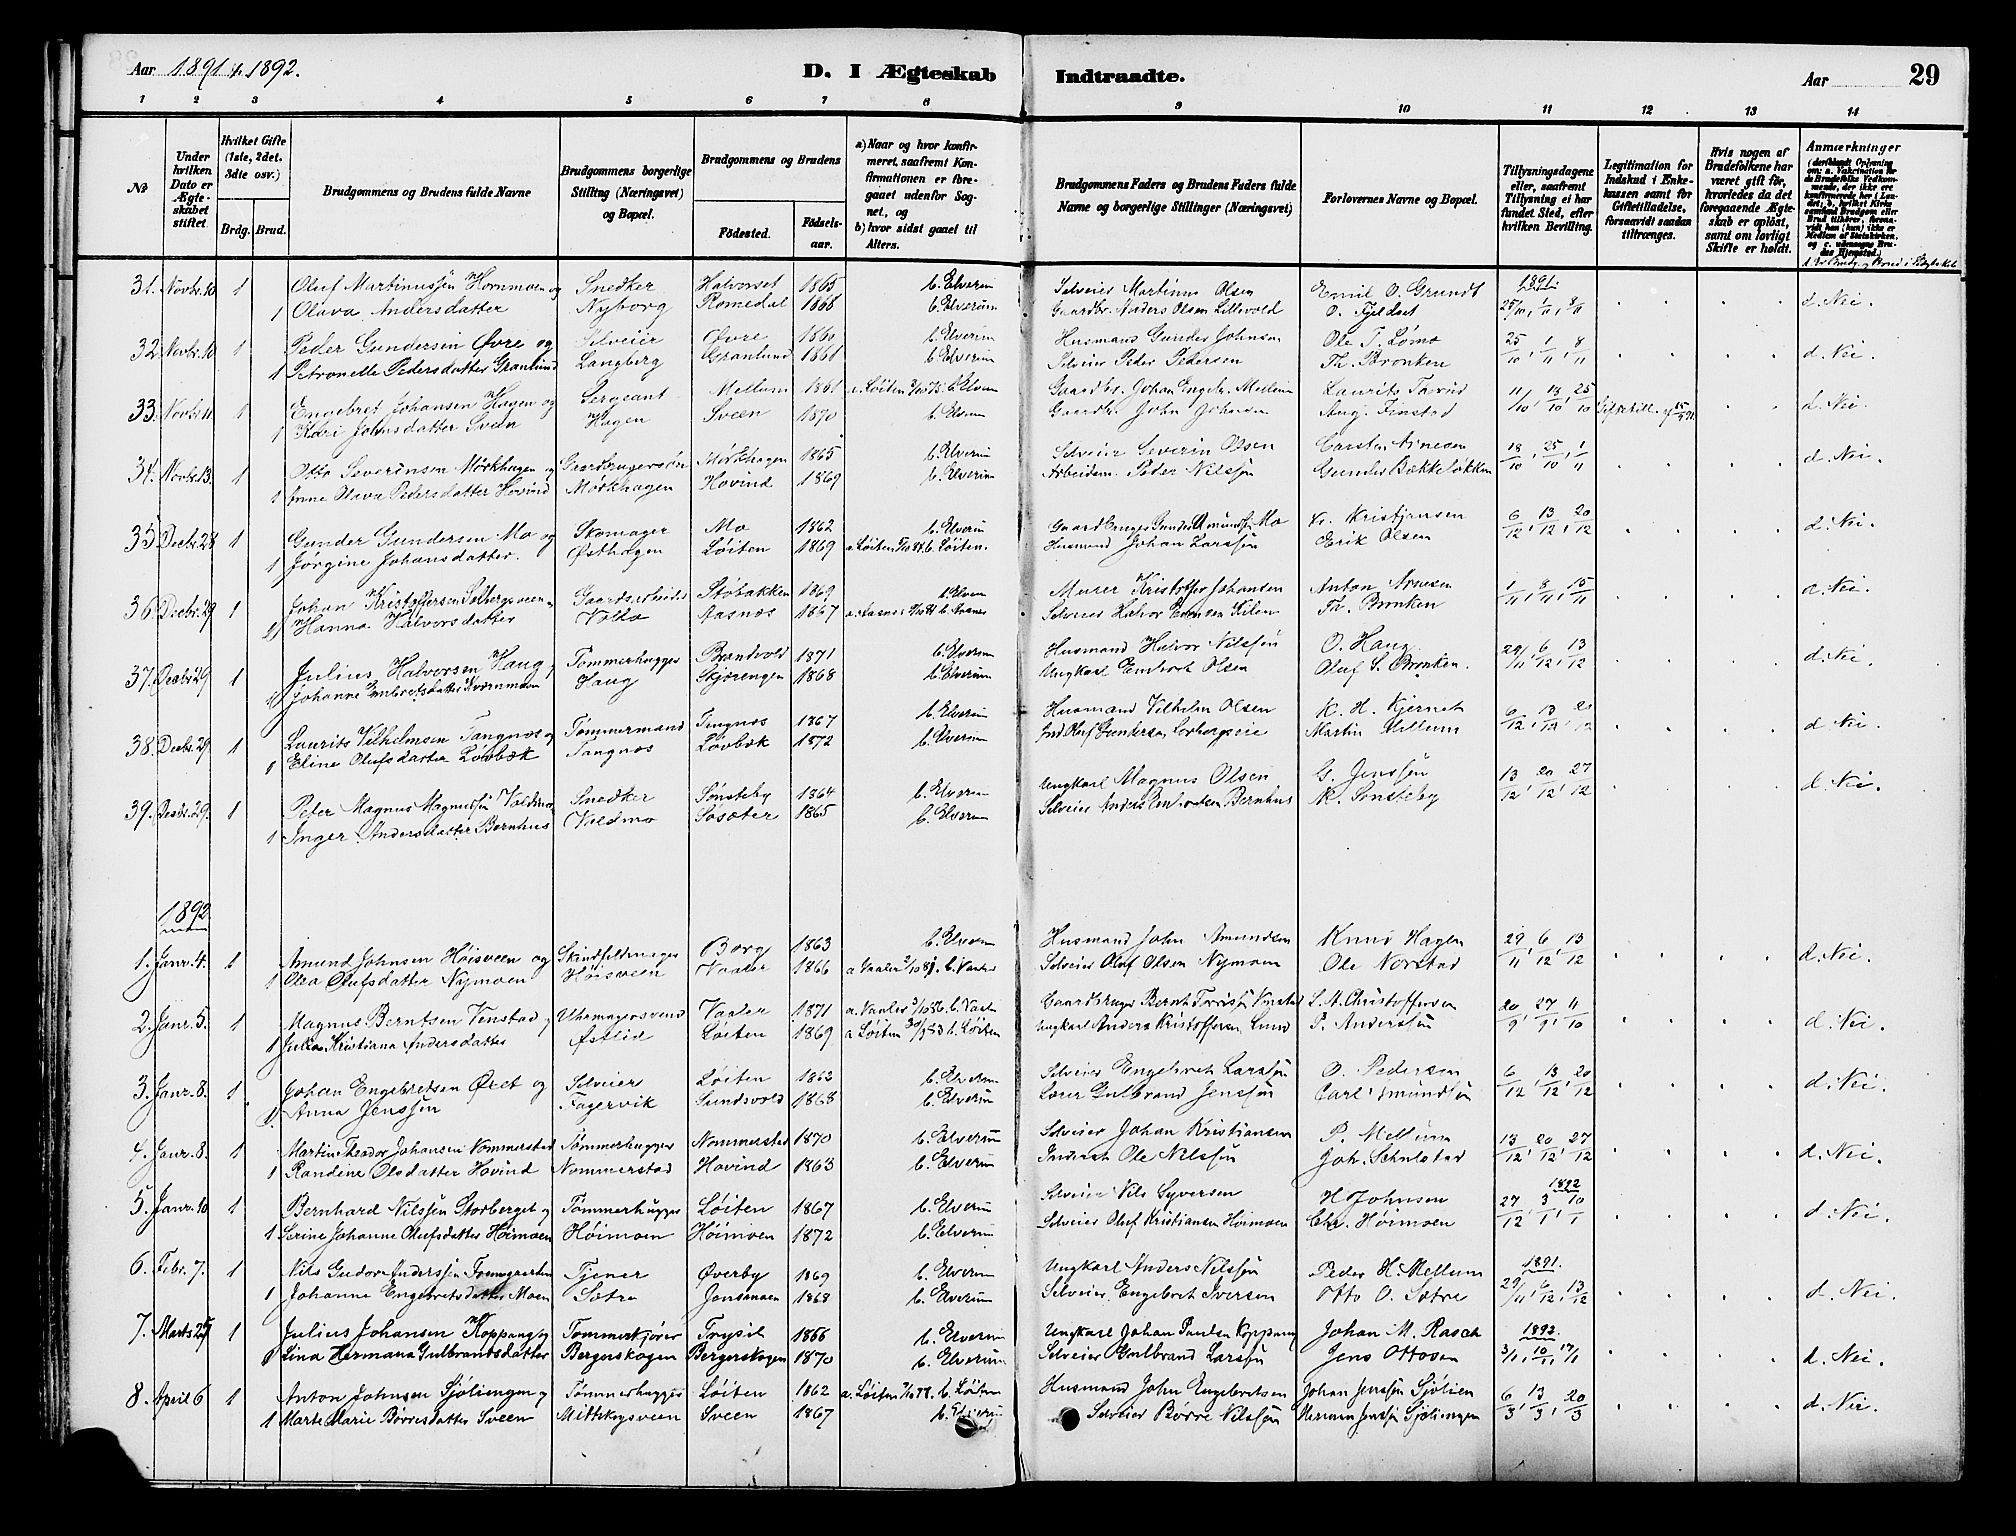 Aar 1891 & 1892.
D. I Ægteskab Indtraadte.
Aar 29
1 2 3 4 5 6 7 8 9 10 11 12 13 14
№
Under hvilken Dato er Ægteskabet stiftet.
Hvilket Gifte (1ste, 2det. 3die osv.)
Brdg. Brud.
Brudgommens og Brudens fulde Navne
Brudgommens borgerlige Stilling (Næringsvei) og Bopæl.
Brudgommens og Brudens
Fødested. Fødselsaar.
a) Naar og hvor konfirmeret, saafremt Konfirmationen er foregaaet udenfor Sognet, og
b) hvor sidst gaaet til Alters.
Brudgommens Faders og Brudens Faders fulde Navne og borgerlige Stillinger (Næringsvei)
Forlovernes Navne og Bopæl.
Tillysningsdagene eller, saafremt Tillysning ei har fundet Sted, efter hvilken Bevilling.
Legitimation for Indskud i Enkekassen samt for Giftetilladelse, forsaavidt saadan tiltrænges.
Hvis nogen af Brudefolkene har været gift før, hvorledes da det foregaaende Ægteskab er opløst, samt om lovligt Skifte er holdt.
Anmærkninger
31. Novbr. 10 1 Oluf Martinussen Hornmoen og Snedker Halvorset 1865 b. Elverum Selveier Martinus Olsen Emil O. Grundt 1891
1 Olava Andersdatter Nyborg Romedal 1868 b. Elverum Gaardbr. Anders Olsen Lillevold O. Fjeldset 25/10, 1/11, 8/11 d. Nei.
32 Novbr. 10 1 Peder Gundersen Øvre og Selveier Øvre 1860 b. Elverum Husmand Gunder Johnsen Ole T. Lømo 25/10, 1/11, 8/11
1 Petronelle Pedersdatter Granlund Langberg Granlund 1861 b. Elverum Selveier Peder Pedersen Th. Bronken d. Nei.
33. Novbr. 11 1 Engebret Johansen Hagen og Sergeant Mellum 1861 b. Elverum Gaardbr. Johan Engebr. Mellum Laurits 11/10, 13/10, 25/10
1 Kari Johnsdatter Sveen Hagen Sveen 1870 b. Elverum Gaardbr. John Johnsen Aug. Finstad d. Nei.
34. Novbr. 13. 1 Otto Severinsen Mørkhagen og Gaardbrugersøn Mørkhagen 1865 b. Elverum Selveier Severin Olsen Carsten Arnesen 18/10, 25/10, 1/11
1 Anne Olava Pedersdatter Hovind Mørkhagen Hovind 1869 b. Elverum Arbeidsm. Peder Nilssøn Gunder Bækkeløkken d. Nei.
35 Decbr. 28 1 Gunder Gundersen Mo og Skomager Mo 1862 b. Elverum Gaardbruger Gunder Amundsen Mo Kr. Kristjensen 6/12, 13/12, 20/12
1 Jørgine Johansdatter. Østhagen Løiten 1869 b. Løiten. Husmand Johan Larssøn Erik Olsen d. Nei.
36 Decbr. 29 1 Johan Kristoffersen Solbergsveen og Gaardsarbeider Støbakken 1869 b. Elverum Murer Kristoffer Johansen Anton Arnesen 1/11, 8/11, 15/11
Hanna Halvorsdatter Volla Aasnes 1867 b. Aasnes Selveier Halvor Kilen Th. Bronken d. Nei.
37. Decbr. 29 1 Julius Halvorsen Haug og Tømmerhugger Brandvold 1871 b. Elverum Husmand Halvor Nilssøn O. Haug 29/11, 6/12, 13/12
Johanne Embretsdatter Kværnmoen Haug Skjærengen 1868 b. Elverum Ungkarl Embret Olsen Oluf L. Bronken. d. Nei.
38. Decbr. 29 1 Laurits Vilhelmsen Tangnæs og Tømmermand Tangnæs 1867 b. Elverum Husmand Vilhelm Olsen K. H. Kjernet 6/12, 13/12, 20/12
1 Eline Olufsdatter Løvbæk Tangnæs Løvbæk 1872 b. Elverum Ind. Oluf Gundersen Martin Mellum d. Nei.
39. Decbr. 29. 1 Peter Magnus Magnussøn Valdmo og Snedker Sønsteby 1864 b. Elverum Ungkarl Magnus Olsen G. Jenssøn 13/12, 20/12, 27/12
1 Inger Andersdatter Bernhus Valdmo Søsæter 1865 b. Elverum Selveier Anders Embretsen Bernhus K. Sønsteby d. Nei.
1892
1. Janr. 4. 1 Amund Johnsen Høisveen og Skindfeldmager Borg 1863 b. Elverum Husmand John Amundsen Knud Hagen 29/11, 6/12, 13/12
1 Olea Olufsdatter Nymoen Høisveen Vaaler 1866 b. Vaaler Selveier Oluf Olsen Nymoen Ole Norstad d. Nei.
2. Janr. 5. 1 Magnus Berntsen Venstad og Uhrmagersvend Vaaler 1871 b. Vaaler Gaardbruger Bernt Venstad L. A. Christoffersen 20/9, 27/9, 11/10
1 Julia Kristiana Andersdatter Østlid Løiten 1869 b. Løiten Ungkarl Anders Kristoffersen Lund P. Anderssøn d. Nei.
3. Janr. 8. 1 Johan Engebretsen Øvet og Selveier Løiten 1862 b. Elverum Selveier Engebret Larssøn O. Pedersen 6/12, 13/12, 20/12
1. Anna Jenssøn Fagervik Sundsvold 1868 b. Elverum Lærer Gulbrand Jenssøn Carl Amundsøn d. Nei.
4. Janr. 8. 1 Martin Theodor Johansen Nommerstad Tømmerhugger Nommerstad 1870 b. Elverum Selveier Johan Kristiansen P. Mellum 13/12, 20/12, 27/12
1 Randine Olsdatter Hovind Nommerstad Hovind 1863 b. Elverum Inderst Ole Nilssøn Joh. Schulstad d. Nei.
5. Janr. 10 1 Bernhard Nilssøn Storberget og Tømmerhugger Løiten 1867 b. Elverum Selveier Nils Syversen H. Johnsen 1892 27/12, 3/1, 10/1
1 Serine Johanne Olufsdatter Høimoen Høimoen Høimoen 1872 b. Elverum Selveier Oluf Kristiansen Høimoen Chr. Høimoen d. Nei.
6. Febr. 7. 1 Nils Gudov Anderssøn Tjener Øverby 1869 b. Elverum Ungkarl Anders Nilssøn Peder H. Mellum 1891.
1 Johanne Engebretsdatter Moen Sætre Jensmoen 1868 b. Elverum Selveier Engebret Iversen Otto O. Sætre 29/11, 6/12, 13/12 d. Nei.
7. Marts 25 1 Julius Johansen Koppang og Tømmerkjører Trysil 1866 b. Elverum Ungkarl Johan Paulsen Koppang Johan M. Rasch 1892.
1 Lina Hermana Gulbrandsdatter Bergerskogen Bergerskogen 1870 b. Elverum Selveier Gulbrand Larssøn Jens Ottosen 3/1, 10/1, 17/1 d. Nei.
8. April 6 1 Anton Johnsen Sjøliengen og Tømmerhugger Løiten 1862 b. Løiten Husmand John Engebretsen Johan Jenssøn Sjølien 6/3, 13/3, 20/3
1 Marte Marie Børresdatter Sveen Mittskogsveen Sveen 1867 b. Elverum Selveier Børre Nilssøn Herman Jenssøn Sjøliengen d. Nei.